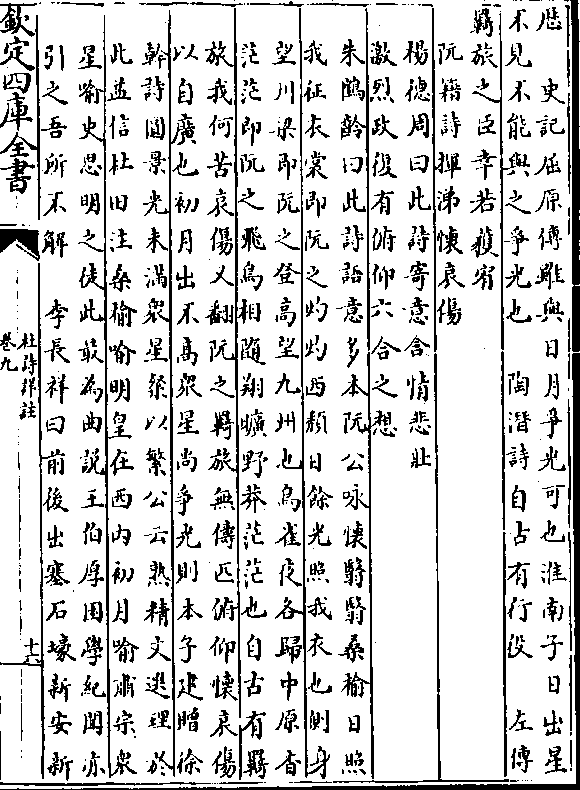 歴　史記屈原傳雖與日月爭光可也淮南子日出星
不見不能與之爭光也　陶潛詩自古有行役　左傳
羇旅之臣幸若獲宥
阮籍詩揮涕懷哀傷
楊德周曰此詩寄意含情悲壯
激烈政復有俯仰六合之想
朱鶴齡曰此詩語意多本阮公咏懷翳翳桑榆日照
我征衣裳即阮之灼灼西頹日餘光照我衣也側身
望川梁即阮之登高望九州也鳥雀夜各歸中原杳
茫茫即阮之飛鳥相隨翔曠野莽茫茫也自古有羇
旅我何苦哀傷又翻阮之羇旅無儔匹俯仰懷哀傷
以自廣也初月出不高衆星尚爭光則本子建贈徐
幹詩圓景光未滿衆星粲以繁公云熟精文選理於
此益信杜田注桑榆喻明皇在西内初月喻肅宗衆
星喻史思明之徒此最為曲說王伯厚困學紀聞亦
引之吾所不解　李長祥曰前後出塞石壕新安新
欽定四庫全書
杜詩詳註
卷九
十六